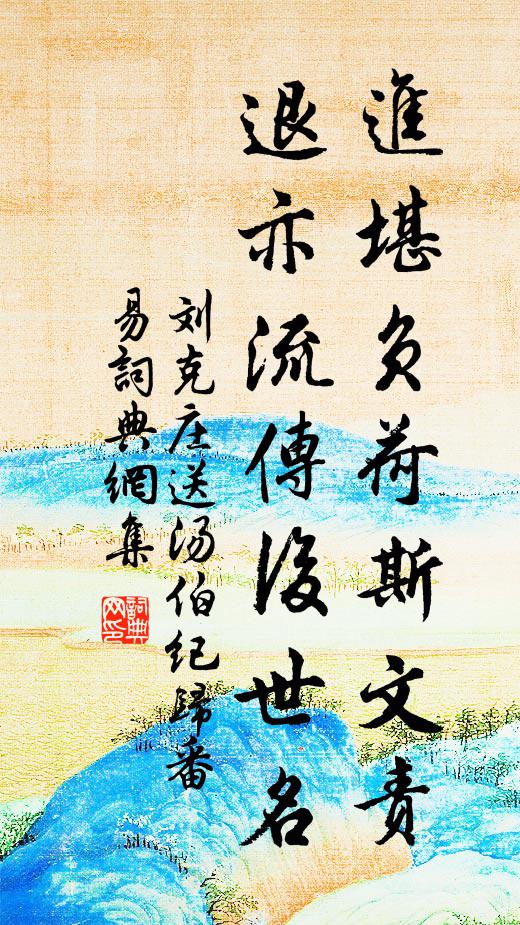 進堪负荷斯文责
退亦流傳後世名
刘克庄送汤伯纪歸番
易詞典網集
詞典
网印